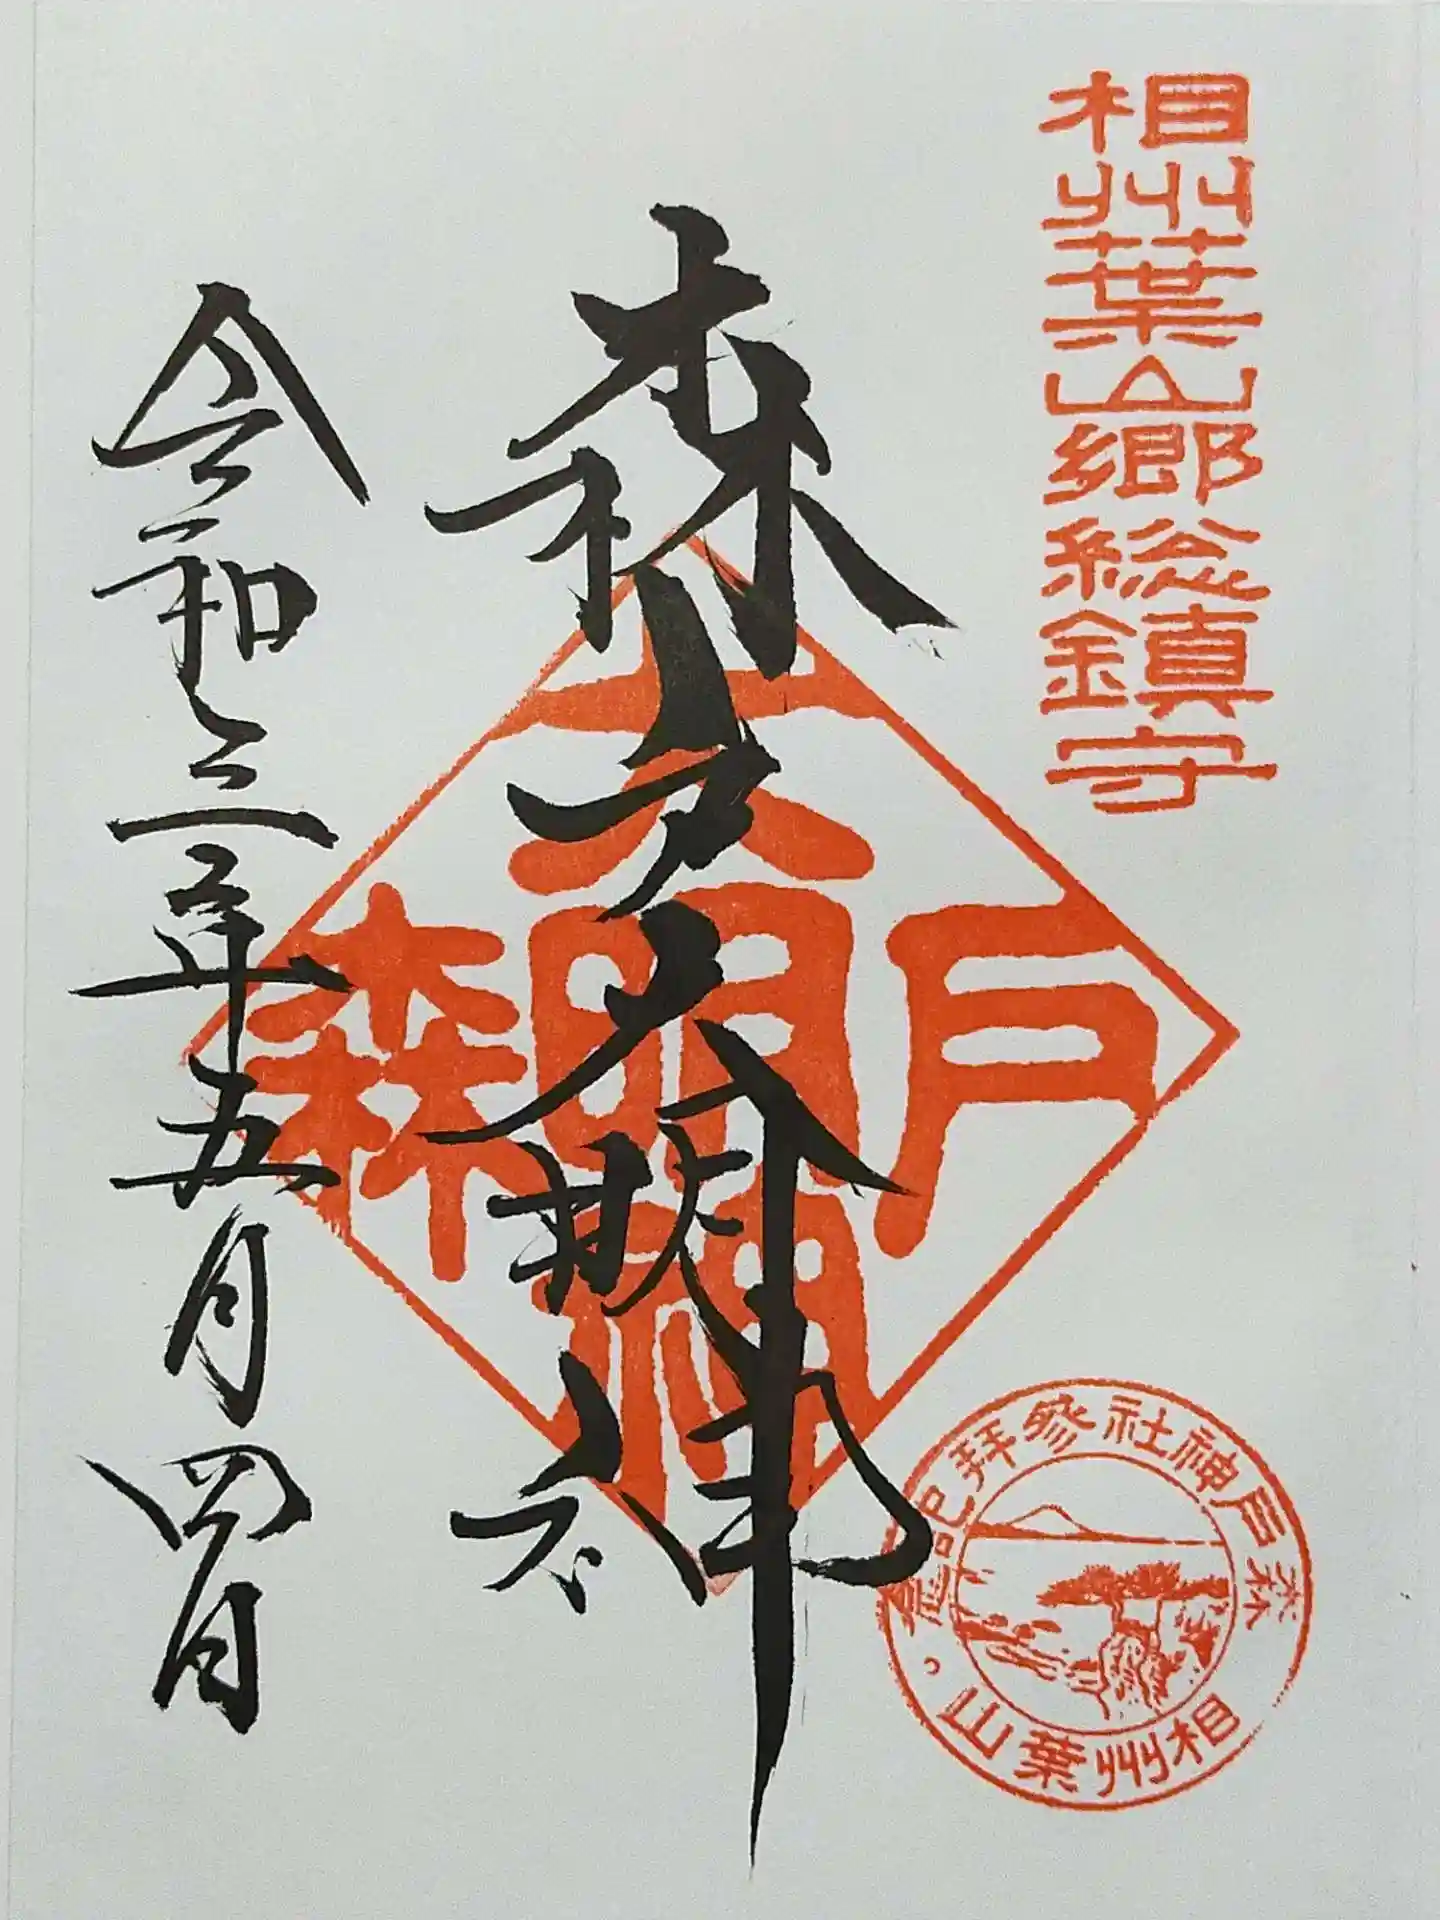 相州葉山郷総鎮守
森戸大明神
令和三年五月四日
森戸大明神
森戸神社参拝記念
相州葉山